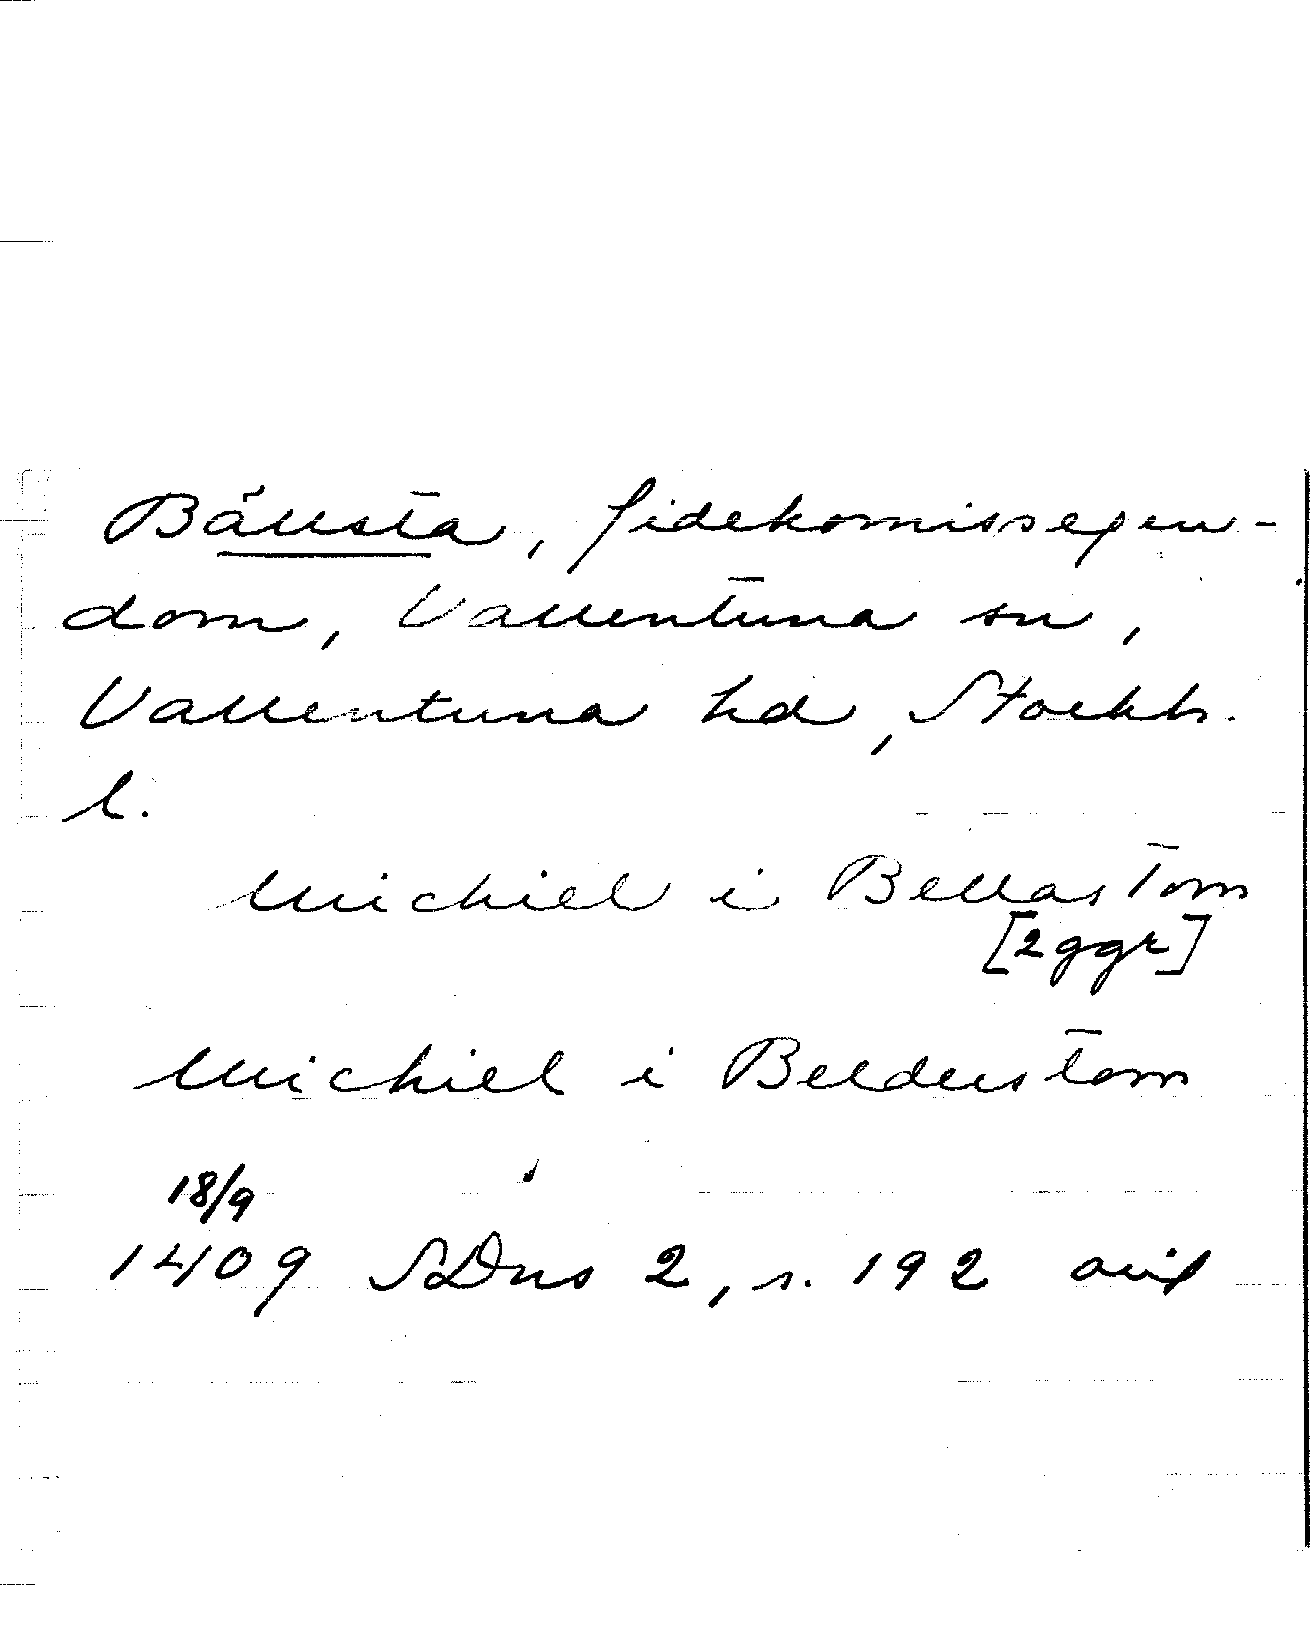 Bällsta, fidekomissegen-
dom, Vallentuna sn,
Vallentuna hd, Stockh.
l.
Michiel i Bellastom
[2 ggr]
Michiel i Beldustom
18/9
1409 SDns 2, s. 192 avs